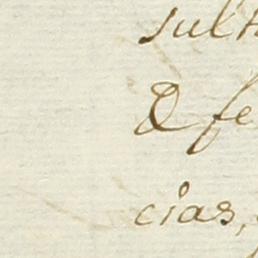 sul
& fe
cias,